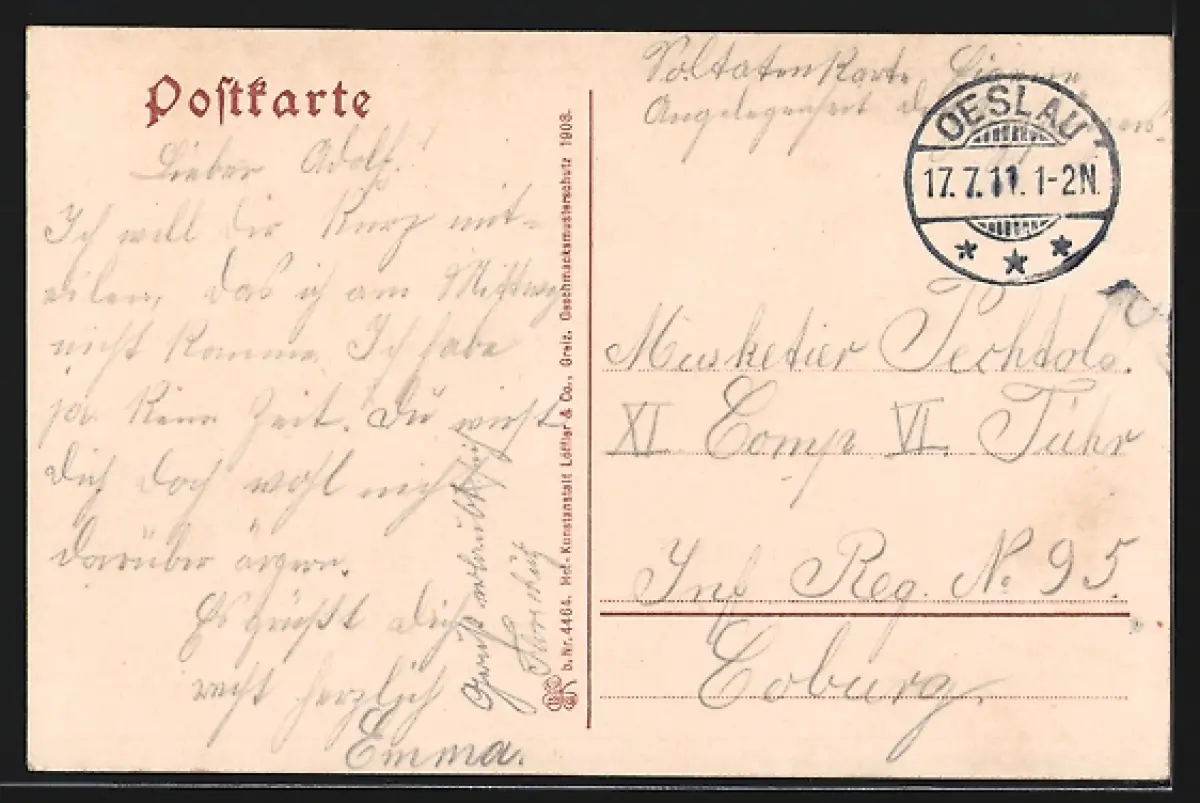 Postkarte
Soldatenkarte Eigene
Angelegenheit
OESLAU
17.7.11. 1-2N.
Lieber Adolf!
Ich will Dir kurz mit-
eilen, das ich am Mittwoch
nicht komme. Ich habe
ja keine Zeit. Du wirst
Dich doch wohl nicht
darüber ärgern.
Es grüßt Dich
recht herzlich
Emma.
Gruß
D.Nr. 4464. Hof-Kunstanstalt Löffler & Co., Greiz. Geschmacksmusterschutz 1903.
Musketier
XI Comp VI.
Inf Reg. No 95.
Coburg.